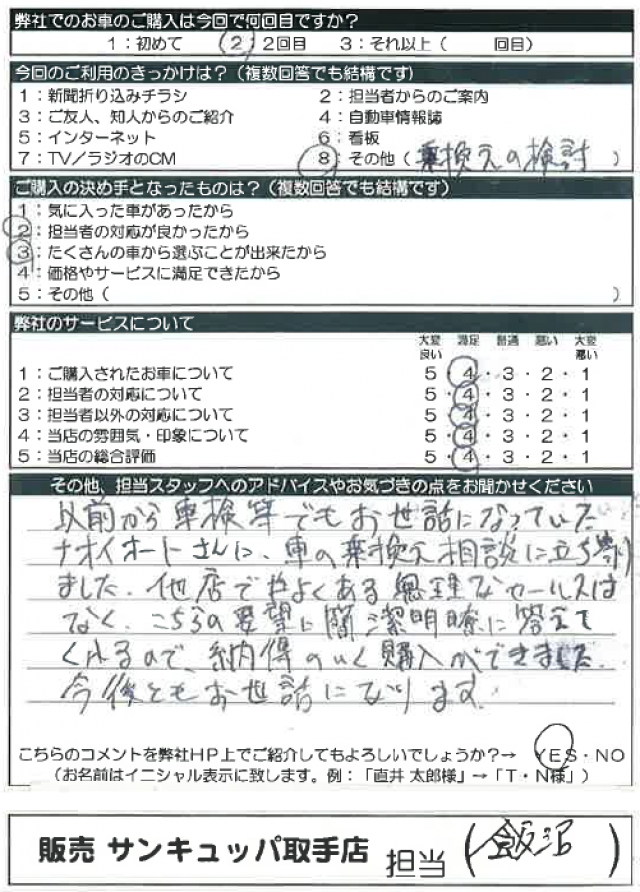 弊社でのお車のご購入は今回で何回目ですか？
1：初めて　2：2回目　3：それ以上（　　回目）
今回のご利用のきっかけは？（複数回答でも結構です）
1：新聞折り込みチラシ　2：担当者からのご案内
3：ご友人、知人からのご紹介　4：自動車情報誌
5：インターネット　6：看板
7：TV／ラジオのCM　8：その他（乗換えの検討）
ご購入の決め手となったものは？（複数回答でも結構です）
1：気に入った車があったから
2：担当者の対応が良かったから
3：たくさんの車から選ぶことが出来たから
4：価格やサービスに満足できたから
5：その他（　　）
弊社のサービスについて
大変良い　満足　普通　悪い　大変悪い
1：ご購入されたお車について　5・4・3・2・1
2：担当者の対応について　5・4・3・2・1
3：担当者以外の対応について　5・4・3・2・1
4：当店の雰囲気・印象について　5・4・3・2・1
5：当店の総合評価　5・4・3・2・1
その他、担当スタッフへのアドバイスやお気づきの点をお聞かせください
以前から車検等でもお世話になっていた
ナオイオートさんに、車の乗換え相談に立ち寄り
ました。他店でよくある無理なセールスは
なく、こちらの要望に簡潔明瞭に答えて
くれるので、納得のいく購入ができました。
今後ともお世話になります。
こちらのコメントを弊社HP上でご紹介してもよろしいでしょうか？→ YES・NO
（お名前はイニシャル表示に致します。例：「直井 太郎様」→「T・N様」）
販売 サンキュッパ取手店　担当（飯沼）